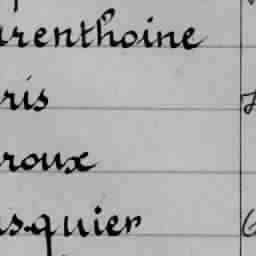 arenthoine
ris
roux
squier